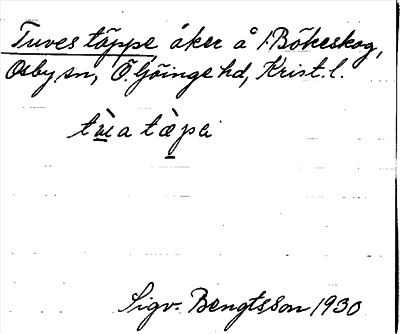 Tuves täppe åker å 1 Bökeskog,
Osby sn, Ö. Göinge hd, Krist. l.
Sigv. Bengtsson 1930